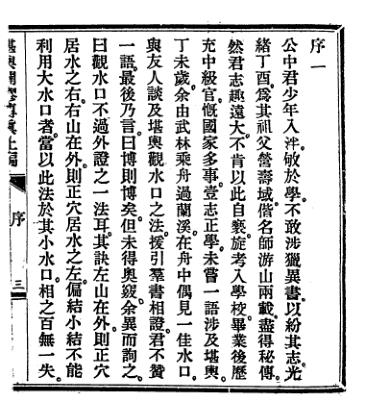 序一
公中君少年入泮。敏於學。不敢涉獵異書。以紛其志。光
緒丁酉。爲其祖父營壽域。偕名師游山兩載。盡得秘傳。
然君志趣遠大。不肯以此自褻。旋考入學校。畢業後歷
充中級官。慨國家多事。壹志正學。未嘗一語涉及堪輿。
丁未歲。余由武林乘舟過蘭溪。在舟中偶見一佳水口。
與友人談及堪輿觀水口之法。援引羣書相證。君不贊
一語。最後乃言曰博則博矣。但未得奥竅。余異而詢之。
曰觀水口不過外證之一法耳。其訣左山在外。則正穴
居水之右。右山在外。則正穴居水之左。偏結小結不能
利用大水口者。當以此法於其小水口相之百無一失。
序
三